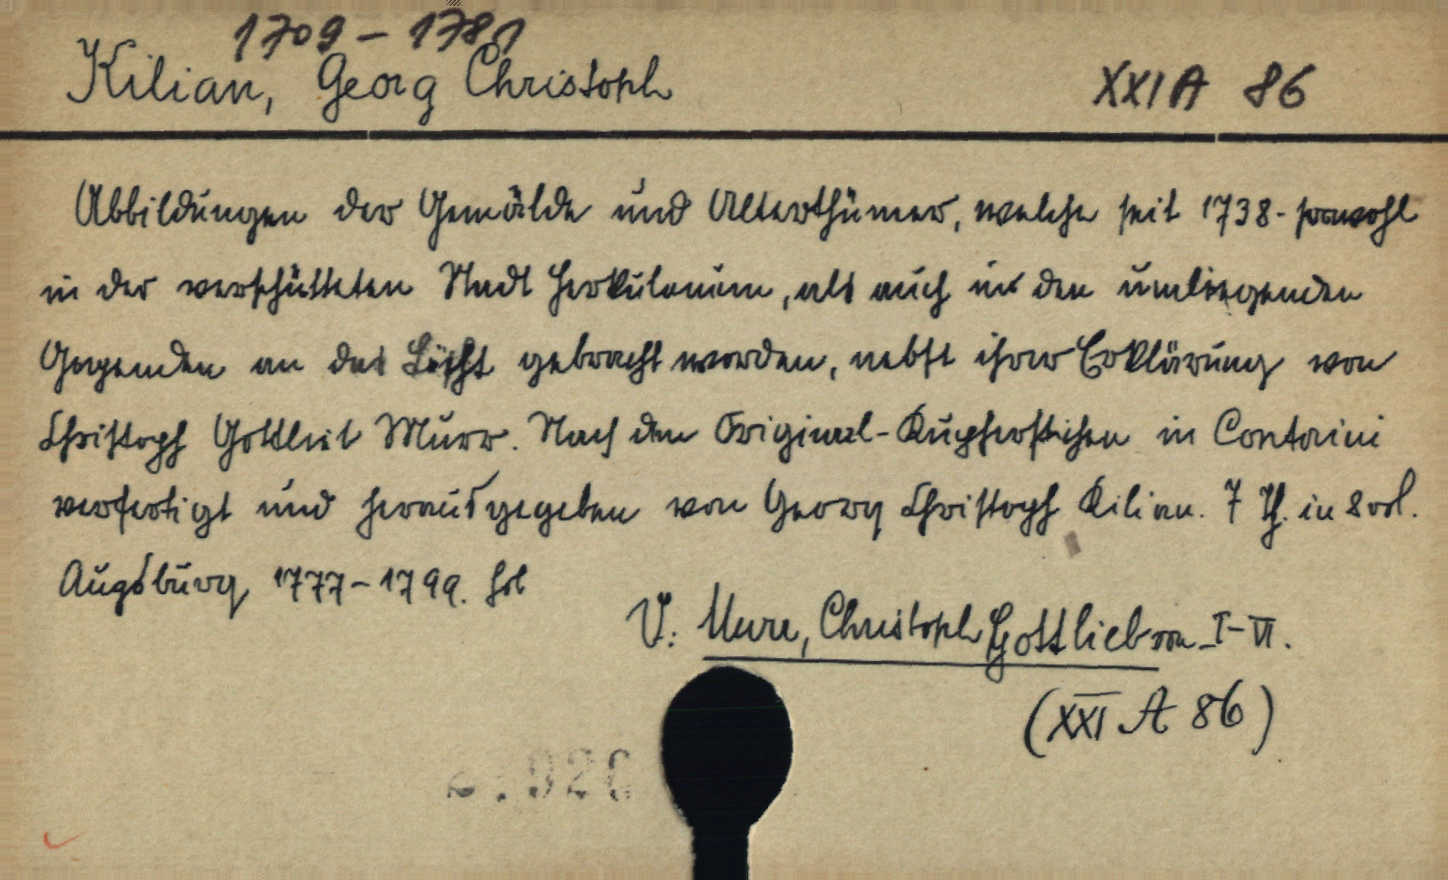 1709 - 1781
Kilian, Georg Christoph XXI A 86
Abbildungen der Gemälde und Alterthümer, welche seit 1738 - sowohl
in der verschütteten Stadt Herkulanum, als auch in den umliegenden
Gegenden an das Licht gebracht worden, nebst ihrer Erklärung von
Christoph Gottlieb Murr. Nach den Original-Kupferstichen in Contorini
verfertigt und herausgegeben von Georg Christoph Kilian. 7 Th. in 8 vol.
Augsburg 1777-1799. fol
V: Murr, Christoph Gottlieb von I-VI.
(XXI A 86)
.920